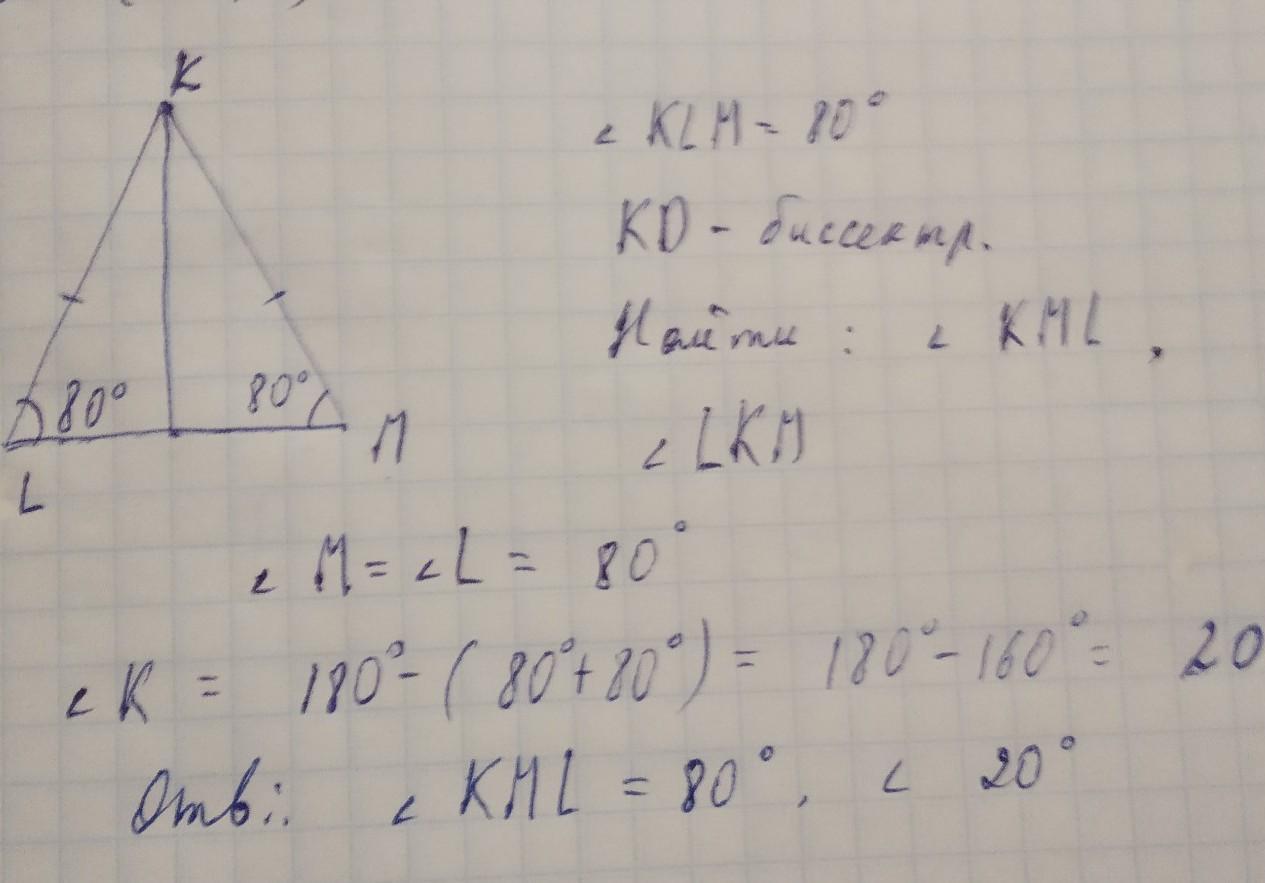 K
∠ KLM = 80°
KD - биссектр.
Найти : ∠ KML ,
80° 80°
M
∠ LKM
L
∠ M = ∠ L = 80°
∠ K = 180° - ( 80° + 80° ) = 180° - 160° = 20
Отв:. ∠ KML = 80° , ∠ 20°